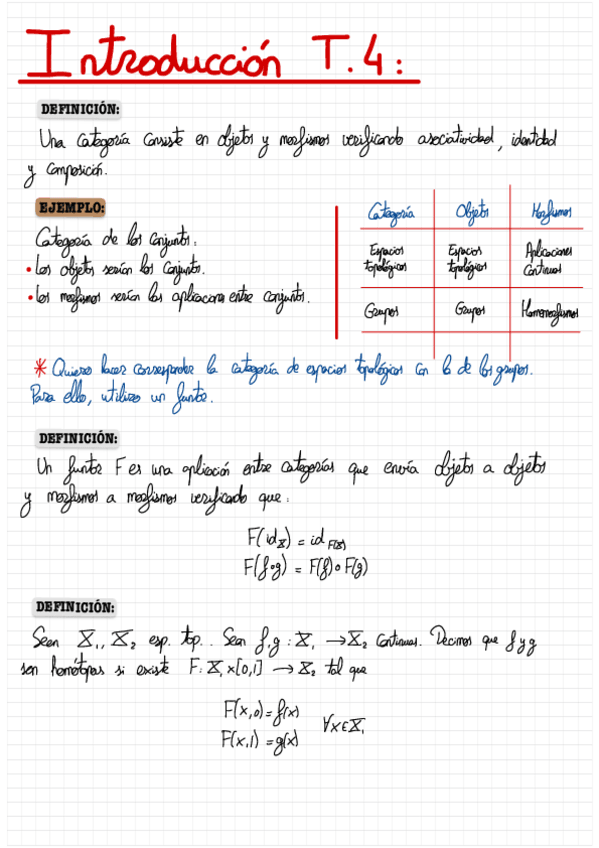 Introducción T.4:
DEFINICIÓN:
Una categoría consiste en objetos y morfismos verificando asociatividad, identidad
y composición.
EJEMPLO:
Categoría de los conjuntos:
• Los objetos serían los conjuntos.
• Los morfismos serían las aplicaciones entre conjuntos.
Categoría Objetos Morfismos
Espacios topológicos Espacios topológicos Aplicaciones continuas
Grupos Grupos Homomorfismos
* Quiero hacer corresponder la categoría de espacios topológicos con la de los grupos.
Para ello, utilizo un functor.
DEFINICIÓN:
Un functor F es una aplicación entre categorías que envía objetos a objetos
y morfismos a morfismos verificando que:
F(id_X) = id_F(X)
F(f∘g) = F(f)∘F(g)
DEFINICIÓN:
Sean X₁, X₂ esp. top.. Sean f,g : X₁ → X₂ continuas. Decimos que f y g
son homótopas si existe F: X₁×[0,1] → X₂ tal que
F(x,0)=f(x)
F(x,1)=g(x) ∀x∈X₁